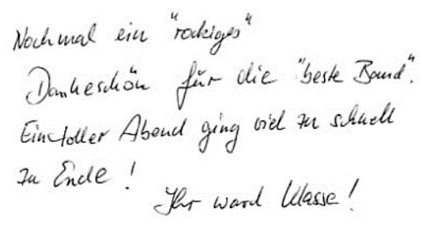 Nochmal ein "rockiges"
Dankeschön für die "beste Band".
Ein toller Abend ging viel zu schnell
zu Ende!
Ihr ward klasse!